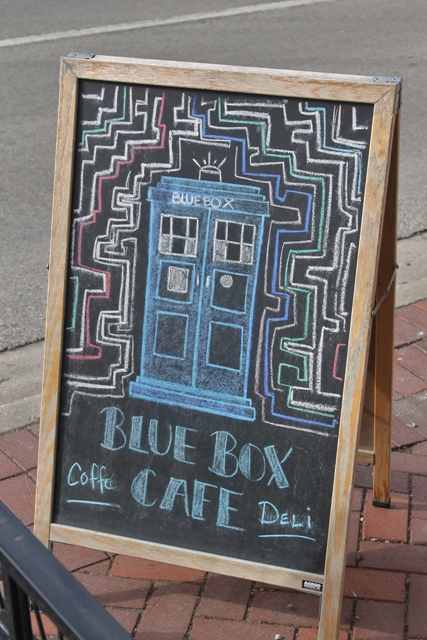 BLUE BOX
BLUE BOX
Coffee CAFE DELI